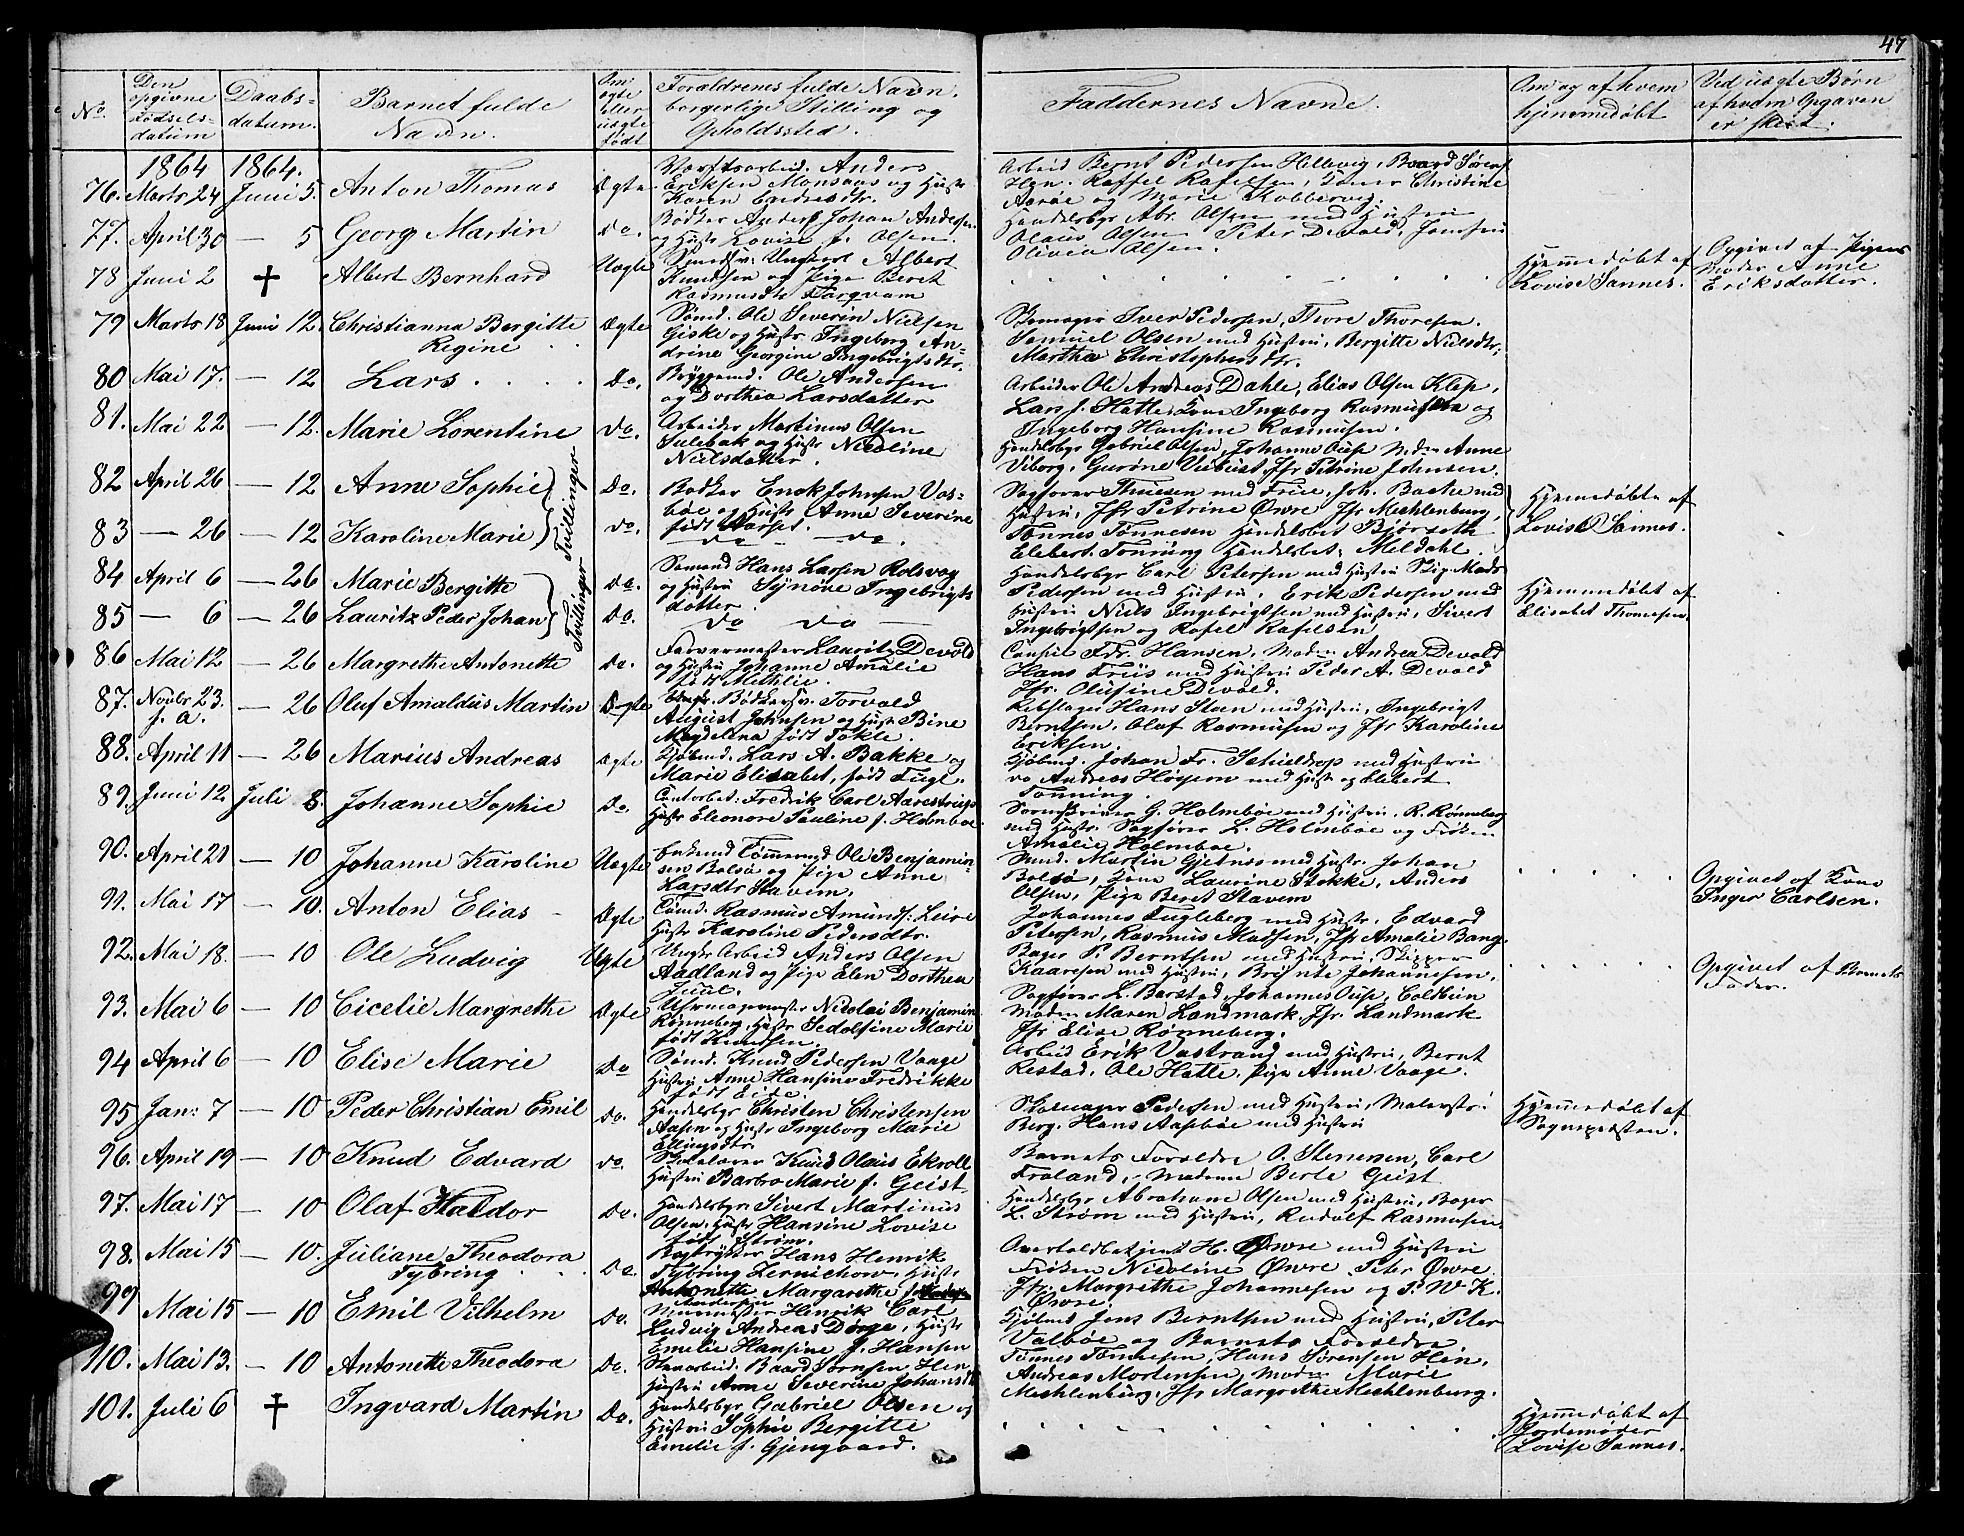 47
No.
Den opgivne Fødsels-datum
Daabs-datum.
Barnet fulde Navn.
Om ægte eller uægte født
Forældrenes fulde Navn. borgerlige Stilling og Opholdssted.
Faddernes Navne.
Om og af hvem hjemmedøbt
Ved uægte Børn af hvem Opgaven er skeet.
1864 1864.
76. Marts 24 Juni 5. Anton Thomas Ægte Værftsarbeid. Anders
Eriksen Monsaas og Hustr
Karen Endresdtr.
Arbeid Bernt Pedersen Hellevig, Baard Sørens
Hen. Raffel Rafelsen, Konen Christine
Aarøe og Marie Kobbervig.
77. April 30 — 5 Georg Martin do. Bødker Anders Johan Andersen
og Hustr Lovise f. Olsen.
Handelsbgr Abr. Olsen med Hustrui
Olaus Olsen Peter Devold, Jomfru
Olivia Olsen.
78 Juni 2 † Albert Bernhard Uægte Smedsv: Ungkarl Albert
Knudsen og Pige Beret
Rasmusdtr Farqvam
Hjemmedøbt af
Lovise Sannes.
Opgivet af Pigens
Moder Anne
Eriksdatter.
79 Marts 18 Juni 12. Christianna Bergitte
Regine
Ægte Sømd. Ole Severin Nielsen
Giske og Hustr Ingeborg An-
drine Georgine Ingebrigtsdtr.
Skomager Iver Pedersen, Thore Thoresen.
Samuel Olsen med Hustrui, Bergitte Nielsdtr,
Martha Christophersdtr.
80 Mai 17. — 12 Lars Do. Bryggemd. Ole Andersen
og Dorthea Larsdatter
Arbeider Ole Andreas Dahle, Elias Olsen Klep,
Lars J. Hatle, Kone Ingeborg Rasmussen og
Ingeborg Hansine Rasmusen.
81. Mai 22 — 12. Marie Lorentine do. Arbeider Martinus Olsen
Sulebak og Hustr Nicoline
Nielsdatter.
Handelsbgr Gabriel Olsen, Johanne Ousp Mdm Anne
Viborg, Gurine Vebust, Jfr Petrine Johnsen.
82 April 26 — 12 Anne Sophie Do. Bødker Enok Johnsen Vas-
bøe og Hustr Anne Severine
født Aarset.
Tvillinger
Sagfører Thiesen med Frue, Joh. Bakke med
Hustrui, Jfr Petrine Øwre, Jfr Mechlenburg,
Hjemmedøbte af
Lovise Sannes.
83 — 26 — 12 Karoline Marie do. — do — do.
Tønnes Tønnesen Handelsbet Bjørseth
Elebert Tonning Handelsbet: Meldahl.
84 April 6 — 26 Marie Bergitte do. Sømand Hans Larsen Rolsvog
og Hustrui Synøve Ingebrigts
datter
Tvillinger
Handelsbgr Carl Petersen med Hustrui Skip. Mads
Pedersen med Hustrui, Erik Pedersen med
Hjemmedøbt af
Elisabet Thomesen
85 — 6 — 26 Lauritz Peder Johan Do. — do do —
Hustrui Niels Ingebrigtsen med Hustrui, Sivert
Ingebrigtsen og Rafel Rafelsen
86 Mai 12 — 26 Margrethe Antonette do. Farvermester Lauritz Devold
og Hustrui Johanne Amalie
født Methlie.
Hansen, Madm Andrea Devold
Hans Friis med Hustrui Peder A. Devold
Jfr. Olufine Devold.
87. Novbr 23. f. a. — 26 Oluf Arnaldus Martin Ægte Bødkersv. Torvald
August Johnsen og Hustr Bine
Magdelena født Tokle.
Rebslager Hans Steen med Hustrui, Ingebrigt
Berntsen, Olaf Rasmusen og Jfr Karoline
Eriksen.
88. April 11 — 26 Marius Andreas Ægte Kjøbmd. Lars A. Bakke og
Marie Elisabet, født Fugl.
Kjøbmd. Johan Fr. Schieldrop med Hustrui
do Andreas Høysem med Hustr og Elebert
Tonning.
89. Juni 12 Juli 8. Johanne Sophie Do Contorbet: Fredrik Carl Aarestrup
Hustr Eleonore Pauline f. Holmboe
Sorenskriver G. Holmboe med Hustrui, R. Rønneberg
med Hustr. Sagfører L. Holmboe og Frøken
Amalie Holmboe.
90. April 21 — 10 Johanne Karoline Uægte Enkemd Tømmermd Ole Benjamin-
sen Bolsø og Pige Anne
Larsdtr Stavem.
Smed. Martin Gjetnes med Hustr. Johan
Bolsø, Kone Laurine Stokke, Anders
Olsen, Pige Beret Stavem
Opgivet af Kone
Inger Carlsen.
91. Mai 17 — 10. Anton Elias Ægte Tømd. Rasmus Amunds. Leire
Hustr Karoline Pedersdtr.
Johannes Fugleberg med Hustr, Edvard
Petersen, Rasmus Madsen, Jfr Amalie Bang.
92. Mai 18. — 10 Ole Ludvig Uægte Ungkr Arbeid Anders Olsen
Aadland og Pige Elen Dorthea
Juul.
Bager P. Berntsen med Hustrui, Skipper
Kaaresen med Hustrui, Brynte Johannesen,
Opgivet af Barnets
Fader.
93. Mai 6 — 10 Cicelie Margrethe Ægte Uhrmagermester Nicolai Benjamin
Rønneberg, Hustr Sedolfine Marie
født Knudsen.
Sagfører L. Barstad, Johannes Ousp, Colbein
Madm Maren Landmark, Jfr. Landmark
Jfr Elise Rønneberg.
94 April 6 — 10 Elise Marie Do Sømd. Knud Pedersen Vaage
Hustrui Anne Hansine Fredrikke
født Eide.
Arbeid Erik Vastrand med Hustrui, Bernt
Restad, Ole Hatle, Pige Anne Vaage.
95 Jan: 7 — 10 Peder Christian Emil Do. Handelsbgr Christen Christensen
Aasen og Hustr Ingeborg Marie
Ellingsdtr
Skomager Pedersen med Hustrui, Malerstr:
Berg. Hans Aasbøe med Hustrui
Hjemmedøbt af
Sognepresten.
96. April 19 — 10 Knud Edvard do. Skolelærer Knud Olaus Ekroll
Hustrui Barbro Marie f. Geist
Barnets Forældre O. Stenersen, Carl
Froland, Madame Berte Geist
97. Mai 17 — 10 Olaf Haldor Do. Handelsbgr. Sivert Martinus
Olsen, Hustr. Hansine Lovise
født Strøm.
Handelsbgr Abrahame Olsen med Hustrui, Bager
L. Strøm med Hustrui, Rudolf Rasmusen.
98. Mai 15 — 10. Juliane Theodora
Tybring
Do. Bogtrykker Hans Henrik
Tybring Zernichow, Hustr
Antonette Margarethe f.
Andersen
Overtoldbetjent H. Øwre med Hustrui
Frøken Nicoline Øwre Peter Øwre
Jfr. Margrethe Johannesen og P. W. K.
Øwre.
99 Mai 15 — 10 Emil Vilhelm Do. Henrik Carl
Ludvig Andreas Dørge, Hustr
Emelie Hansine f. Hansen
Kjøbmd Jens Berntsen med Hustrui, Peter
Valbøe og Barnets Forældre
110. Mai 13. — 10 Antonette Theodora Do. Baard Sørnsen Hen,
Hustrui Anne Severine Johansdtr
Tønnes Tønnesen, Hans Sørensen Hen,
Andreas Mortensen, Madm Marie
Mechlenburg, Jfr Margrethe Mechlenburg.
101. Juli 6 † Ingvard Martin Do. Handelsbgr Gabriel Olsen og
Hustrui Sophie Bergitte
Emelie f. Gjengaard.
Hjemmedøbt af
Jordemoder
Lovise Sannes.